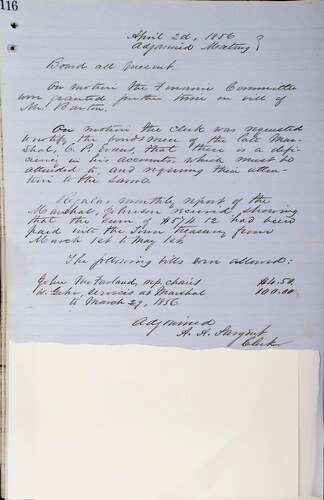 116
April 2d, 1856
Adjourned Meeting
Board all present.
On motion the Finance Committee
were granted further time on bill of
Mr. Barton.
On motion the Clerk was requested
to notify the bondsmen of the late Mar-
shal, C. P. Evans, that there is a defi-
ciency in his accounts, which must be
attended to, and requiring their atten-
tion to the same.
Regular monthly report of the
Marshal, Johnson received, showing
that the sum of had been
paid into the Town Treasury from
March 1st to May 1st
The following bills were allowed:
John McFarland, rep. chairs $4.50,
W. services as Marshal 100.00
to March 27, 1856
Adjourned
A. A. Sargent
Clerk